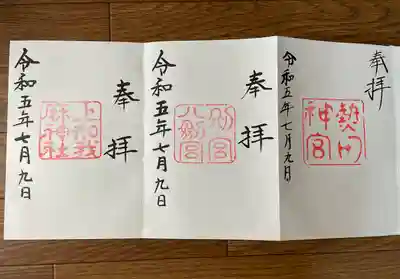 奉拝
熱田
神宮
令和五年七月九日
奉拝
別宮
八剣宮
令和五年七月九日
奉拝
上知我
麻神社
令和五年七月九日